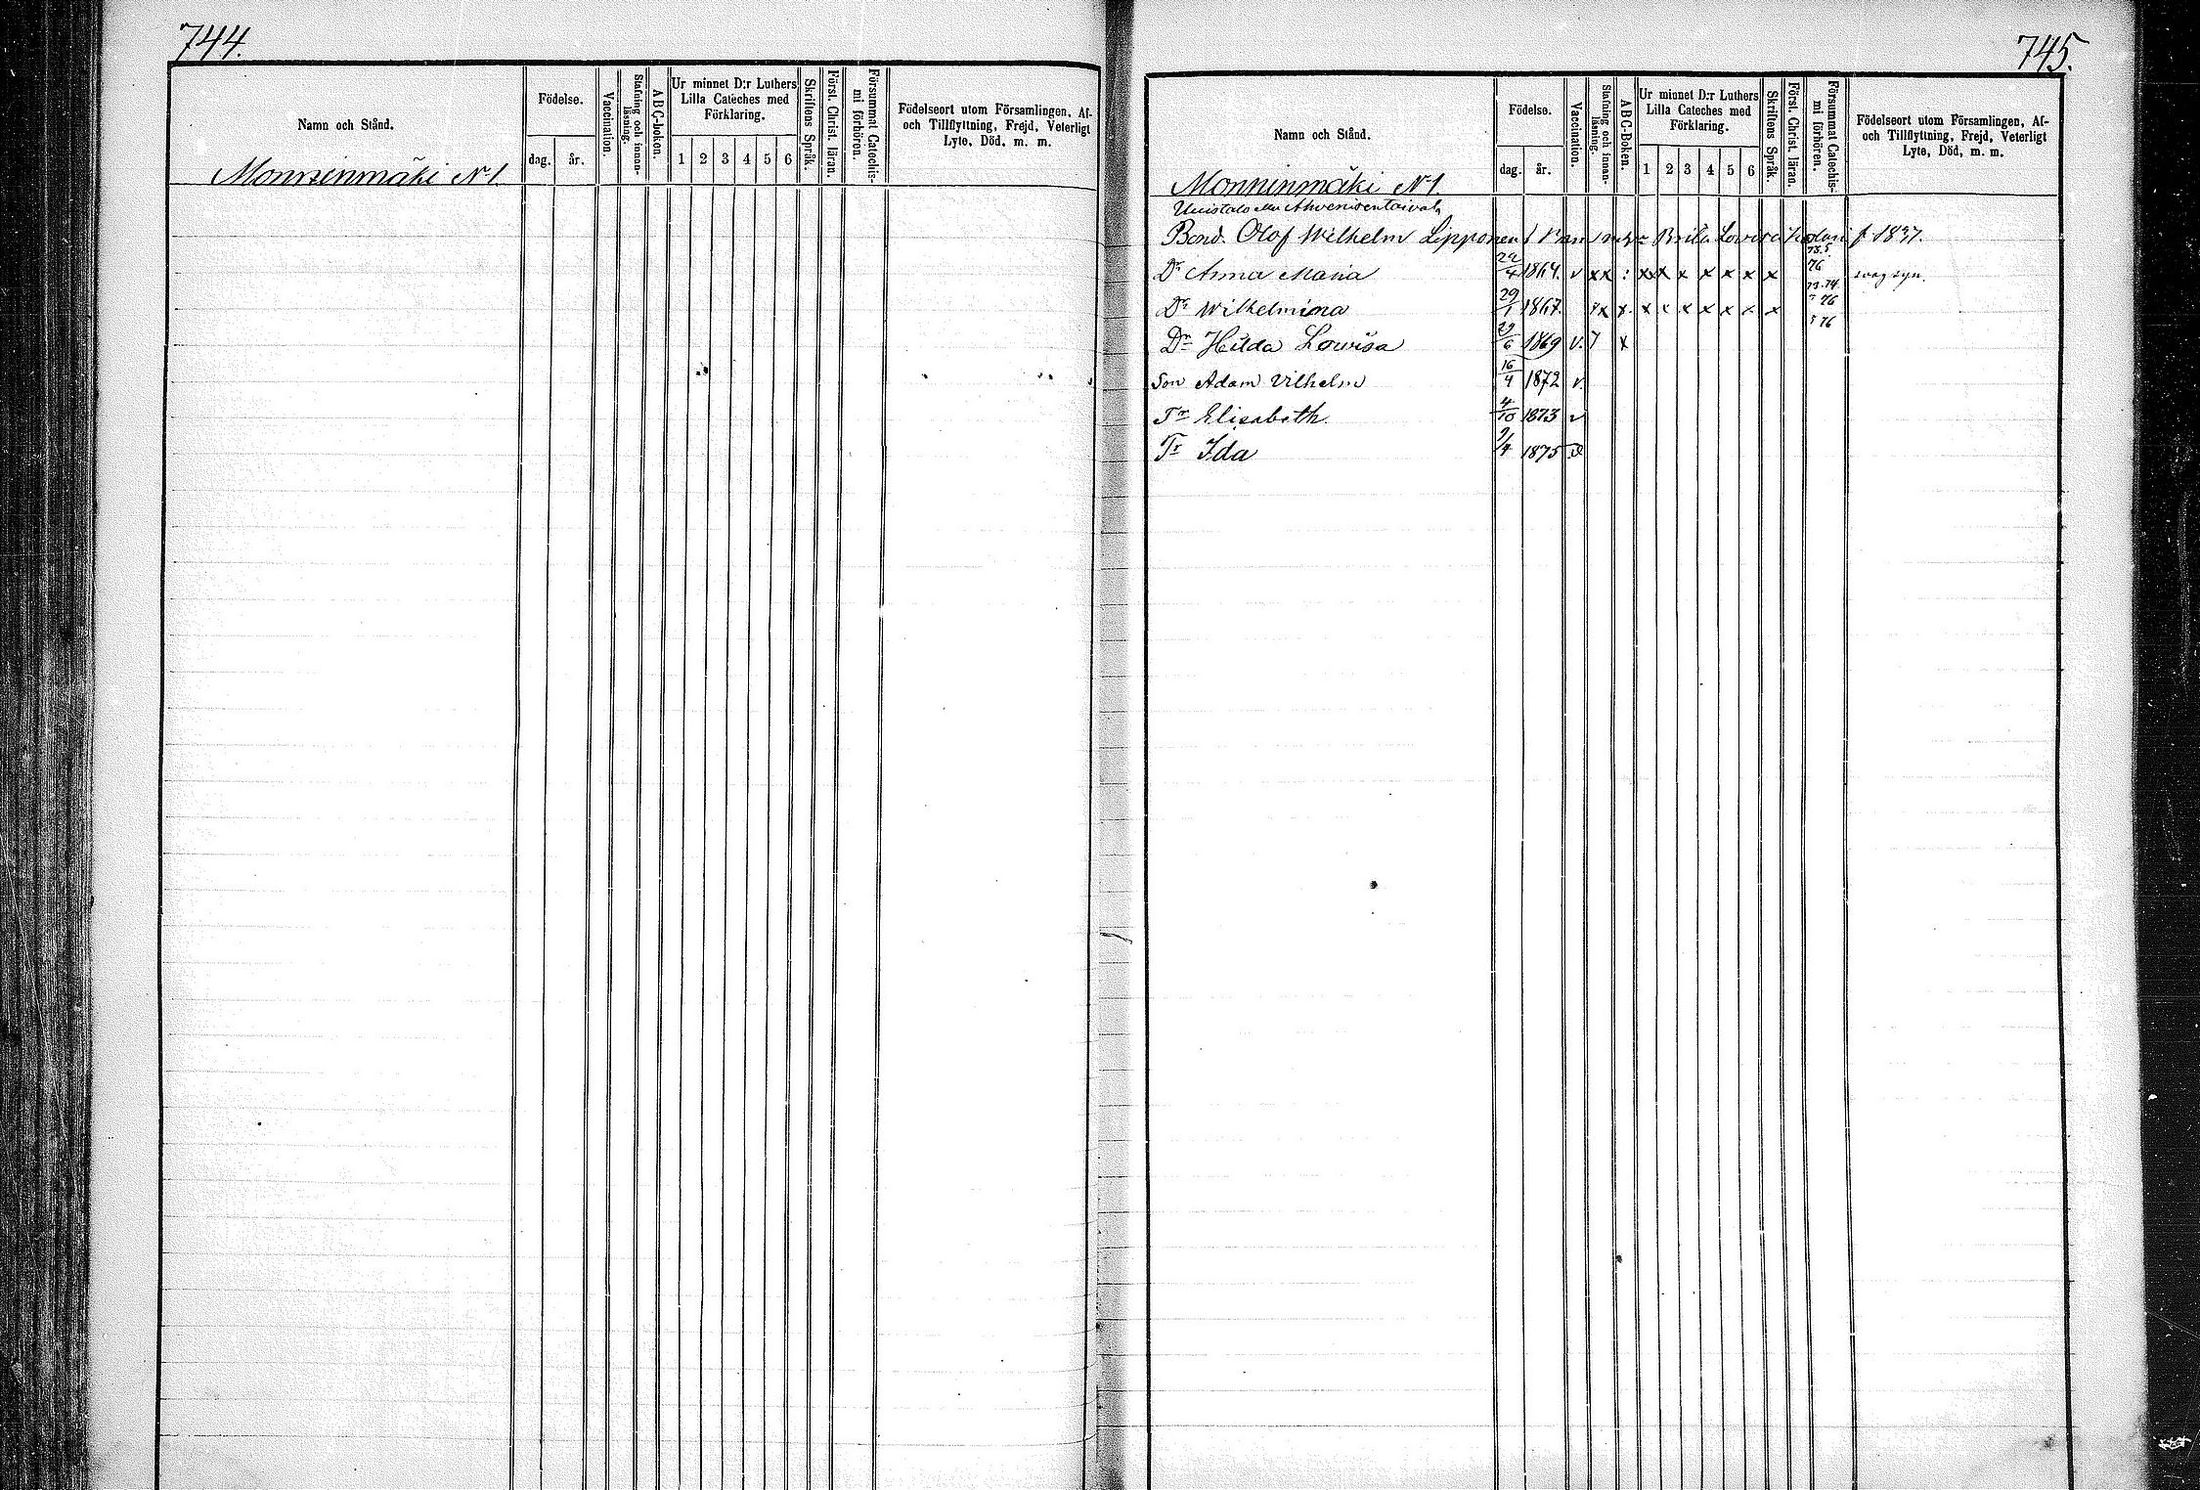 744.
Namn och Stånd.
Födelse.
dag. år.
Vaccination.
Stafning och innan-läsning.
A B C-boken.
Ur minnet D:r Luthers Lilla Cateches med Förklaring.
1 2 3 4 5 6
Skriftens Språk.
Först. Christ. läran.
Försummat Catechis-mi förhören.
Födelseort utom Församlingen, Af- och Tillflyttning, Frejd, Veterligt Lyte, Död, m. m.
Monninmäki N1.
745.
Namn och Stånd.
Födelse.
dag. år.
Vaccination.
Stafning och innan-läsning.
A B C-Boken.
Ur minnet D:r Luthers Lilla Cateches med Förklaring.
1 2 3 4 5 6
Skriftens Språk.
Först. Christ. läran.
Försummat Catechis-mi förhören.
Födelseort utom Församlingen, Af- och Tillflyttning, Frejd, Veterligt Lyte, Död, m. m.
Monninmäki N1.
Uusitalo
Bond. Olof Wilhelm Lipponen Brita Lovisa f 1837.
Dr Anna Maria 1864. v x x : x x x x x x x x 76 svag syn.
Dr Wilhelmina 29/1 1867. x x x x x x x x x 76
Dr Hilda Lowisa 29/6 1869 v. x 76
Son Adam Vilhelm 16/4 1872 v.
Tr Elisabeth. 4/10 1873 v
Tr Ida 9/4 1875 v